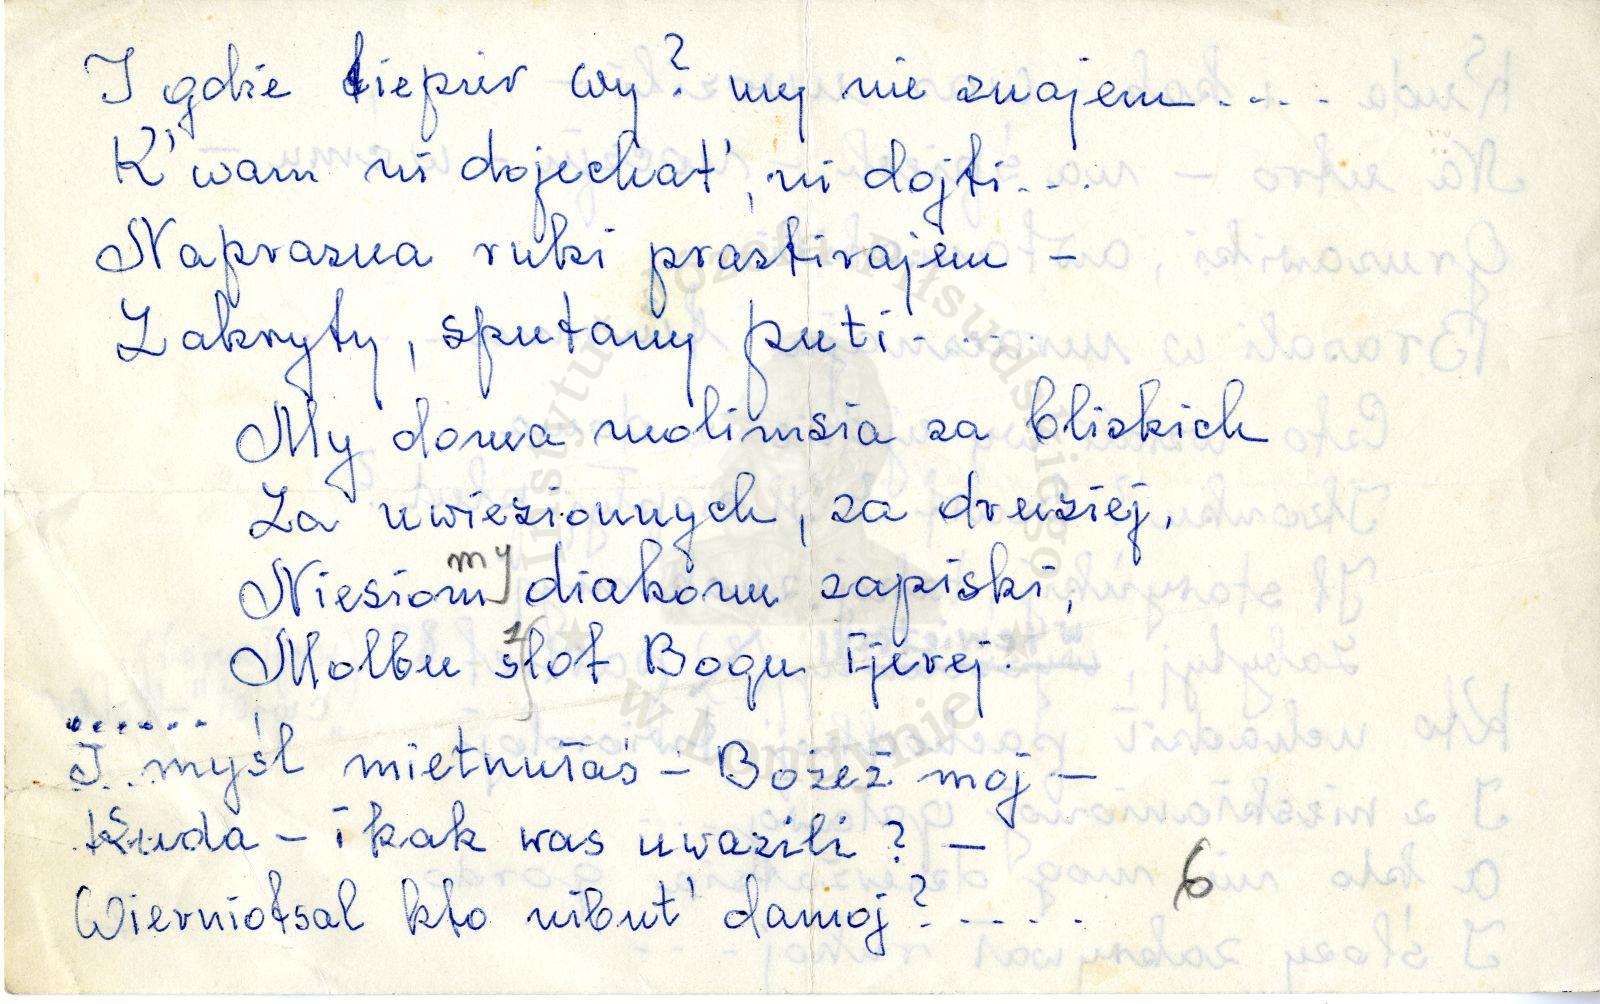 I gdzie tiepier wy? my nie znajem....
K' wam ni dojechat', ni dojti...
Naprasna ruki prastirajem -
Zakryty, sputany puti.....
My doma molimsia za bliskich
Za uwiezionnych, za druziej,
Niesiom my diakonu zapiski,
Molbu słot Bogu ijerej.
......
I myśl mietnułaś - Bożeż moj -
Kuda - i kak was uwazili? -
Wierniotsal kto nibut' damoj?.....
6
Instytut Józefa Piłsudskiego
w Londynie